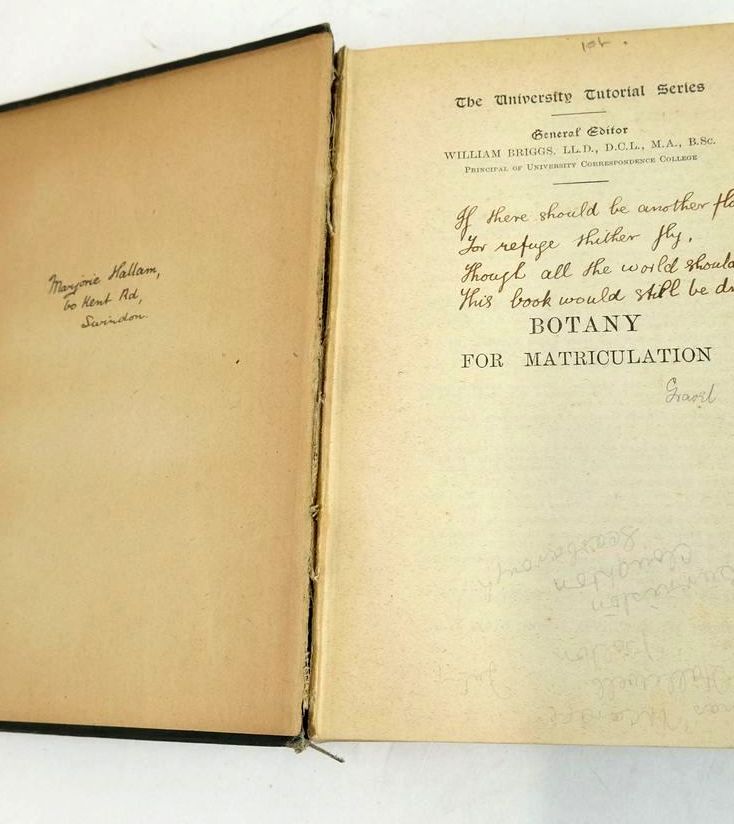 Marjorie Hallam,
60 Kent Rd,
Swindon.
The University Tutorial Series
General Editor
WILLIAM BRIGGS, LL.D., D.C.L., M.A., B.Sc.
PRINCIPAL OF UNIVERSITY CORRESPONDENCE COLLEGE
If there should be another flo
For refuge thither fly,
Though all the world should
This book would still be dr
BOTANY
FOR MATRICULATION
Scarborough
Cloughton